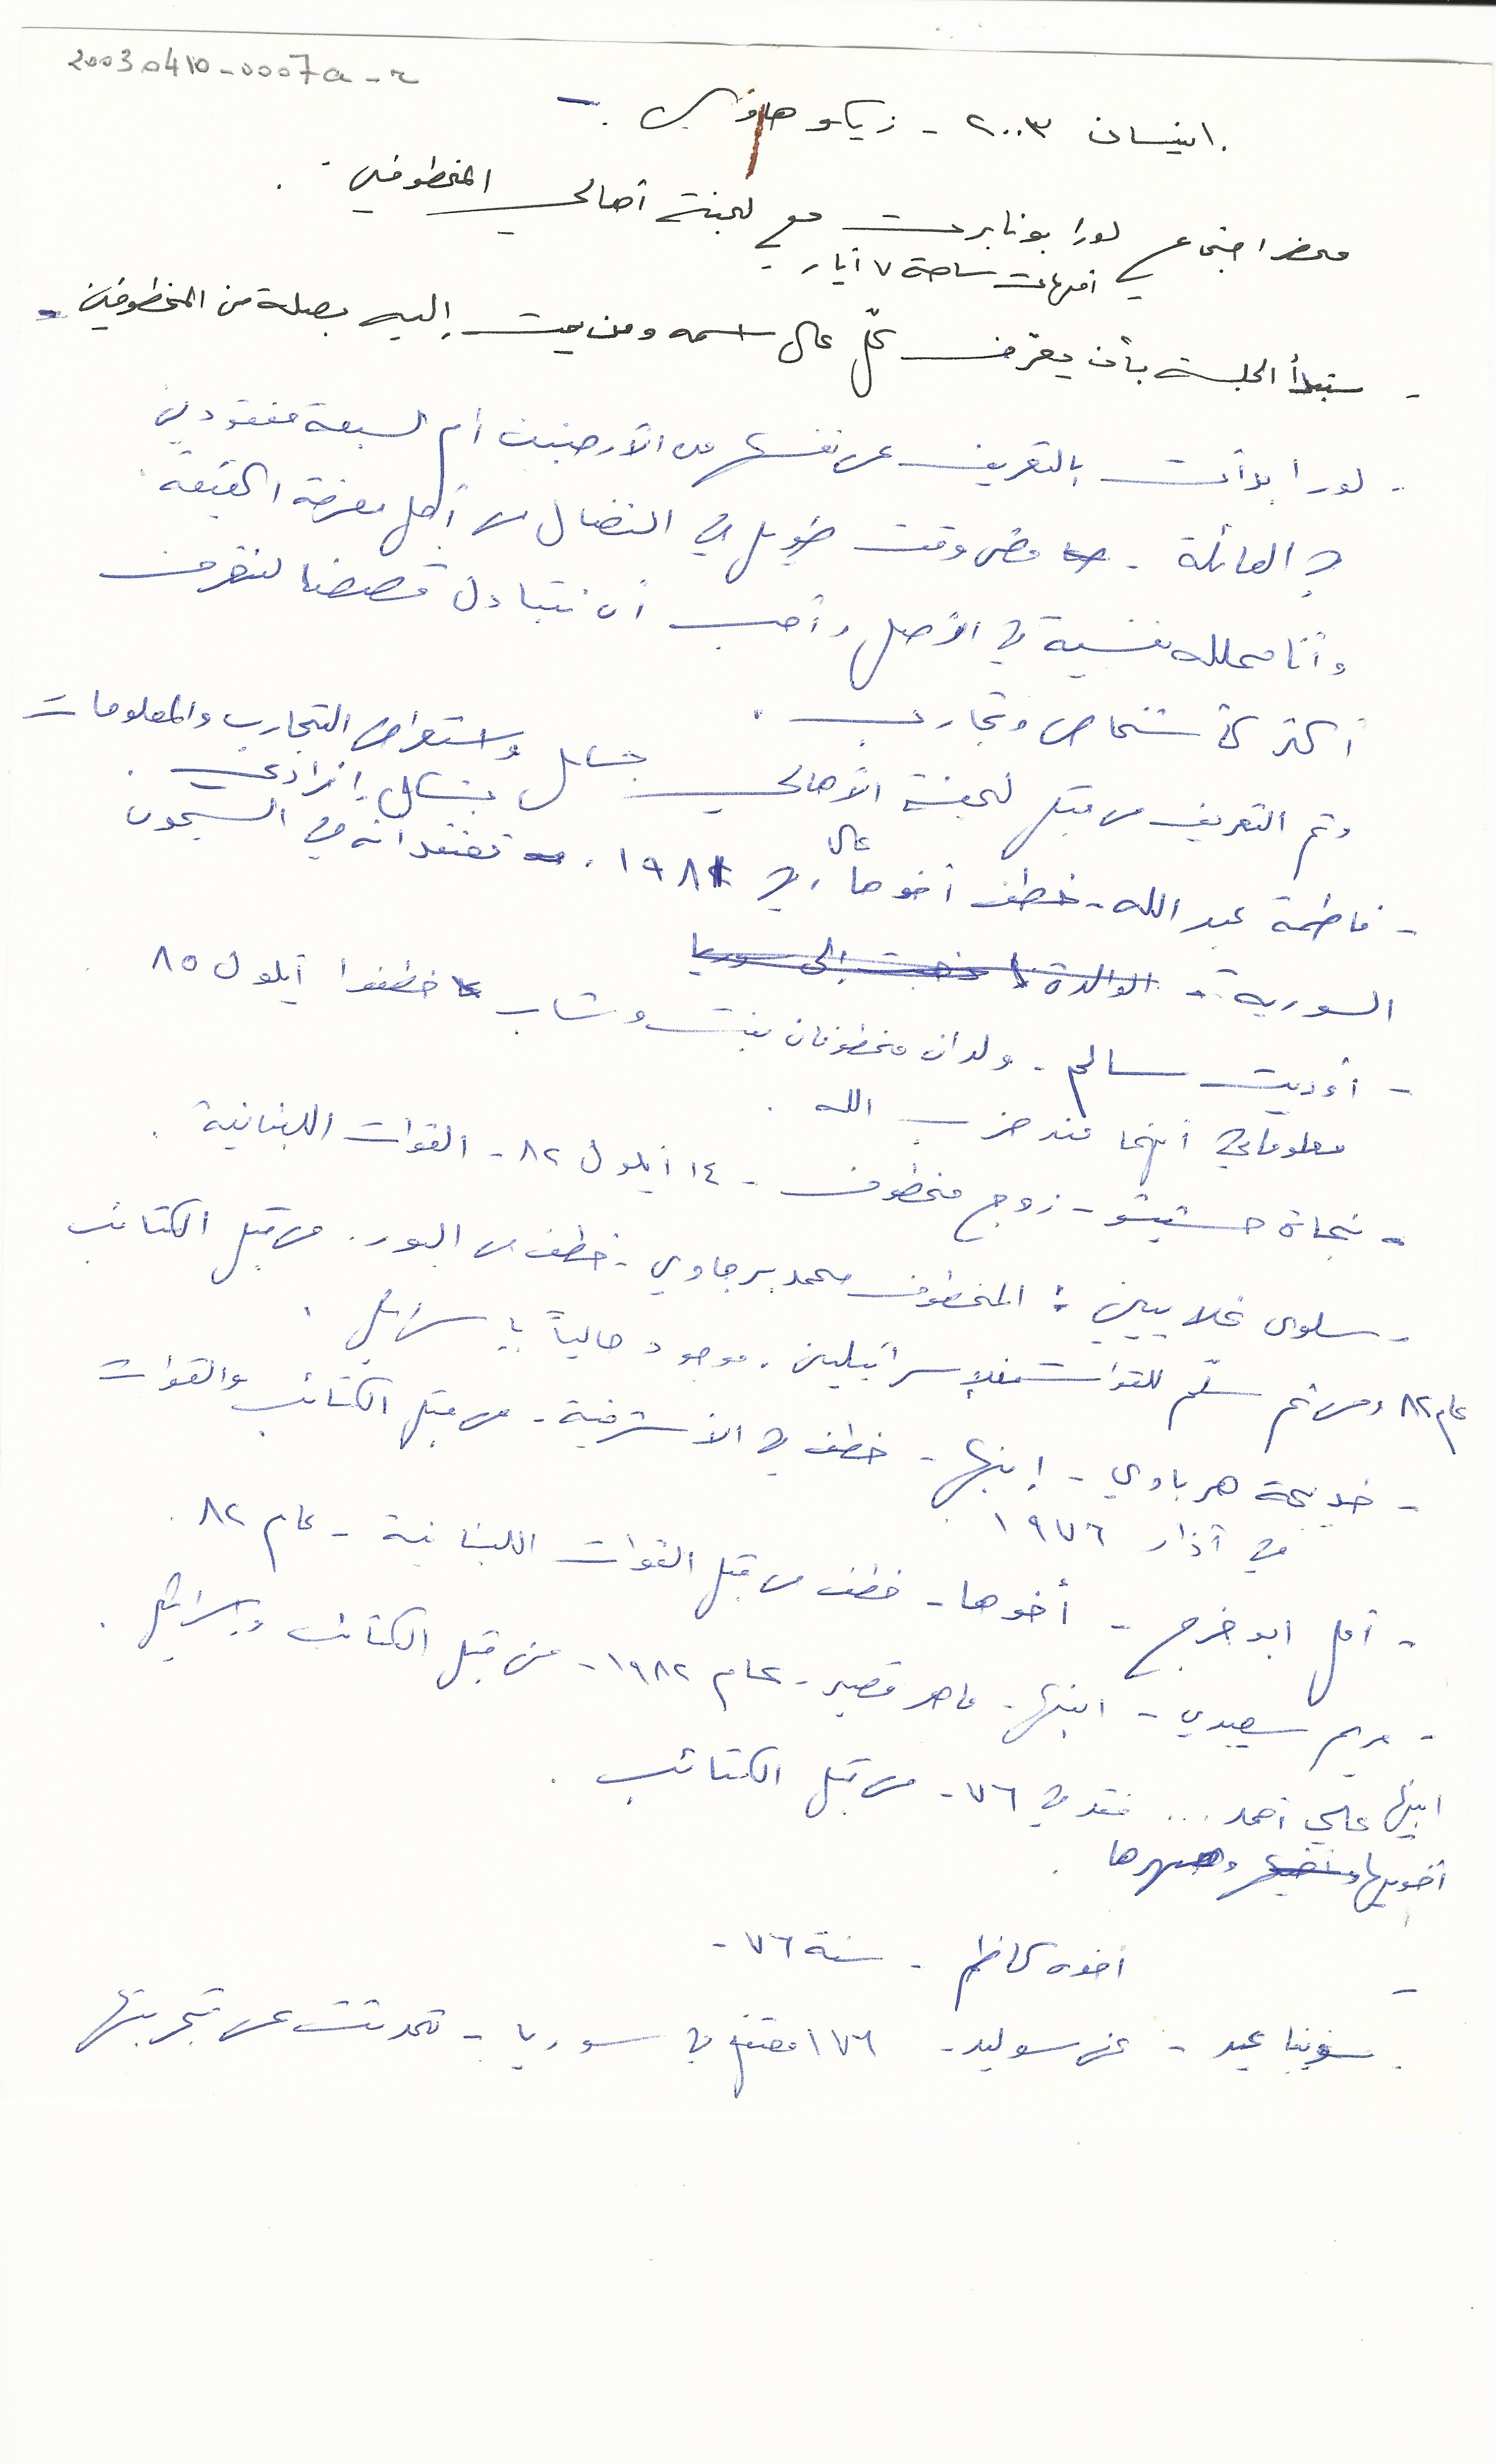 20030410-0007a-r
١٠ نيسان ٢٠٠٣ - زيكو هاوس -
محضر اجتماع لورا بونابرت مع لجنة أهالي المخطوفين .
امهات ساحة ٧ أيار -
- ستبدأ الجلسة بأن يعرّف كلّ عالى اسمه ومن يمت إليه بصلة من المخطوفين -
- لورا بدأت بالتعريف عن نفسها من الأرجنتين أم لسبعة مفقودين
في العائلة - مضى وقت طويل في النضال من أجل معرفة الحقيقة .
وأنا محلله نفسية في الأصل وأحب أن نتبادل قصصنا لنتعرف
أكثر كأشخاص وتجارب .
وتم التعريف من قبل لجنة الأهالي واستعراض التجارب والمعلومات
بشكل إفرادي .
- فاطمة عبد الله - خطف أخوها علي في ١٩٨١ . تعتقد انه في السجون
السورية - الوالدة ذهبت إلى سوريا
- أوديت سالم - ولدان مخطوفان بنت وشاب خطفوا أيلول ٨٥ .
معلوماتي أنهما عند حزب الله .
- نجاة حشيشو - زوج مخطوف - ١٤ أيلول ٨٢ - القوات اللبنانية .
- سلوى غلاييني : المخطوف محمد برجاوي - خطف من البور . من قبل الكتائب
عام ٨٢ ومن ثم سلّم للقوات الإسرائيلين . موجود حالياً بإسرائيل .
- خديجة هرباوي - إبنها - خطف في الأشرفية - من قبل الكتائب والقوات
في آذار ١٩٧٦
- أمل ابو فرج - أخوها - خطف من قبل القوات اللبنانية - عام ٨٢ .
- مريم سعيدي - ابنها - ماهر قصير - عام ١٩٨٢ - من قبل الكتائب وإسرائيل .
ابنها علي أحمد ... فقد في ٧٦ - من قبل الكتائب .
أخويها وصهرها .
- أخوه كاظم - سنة ٧٦ -
- سونيا عيد - عن سوليد - ١٧٦ معتقل في سوريا - تحدثت عن تجربتها